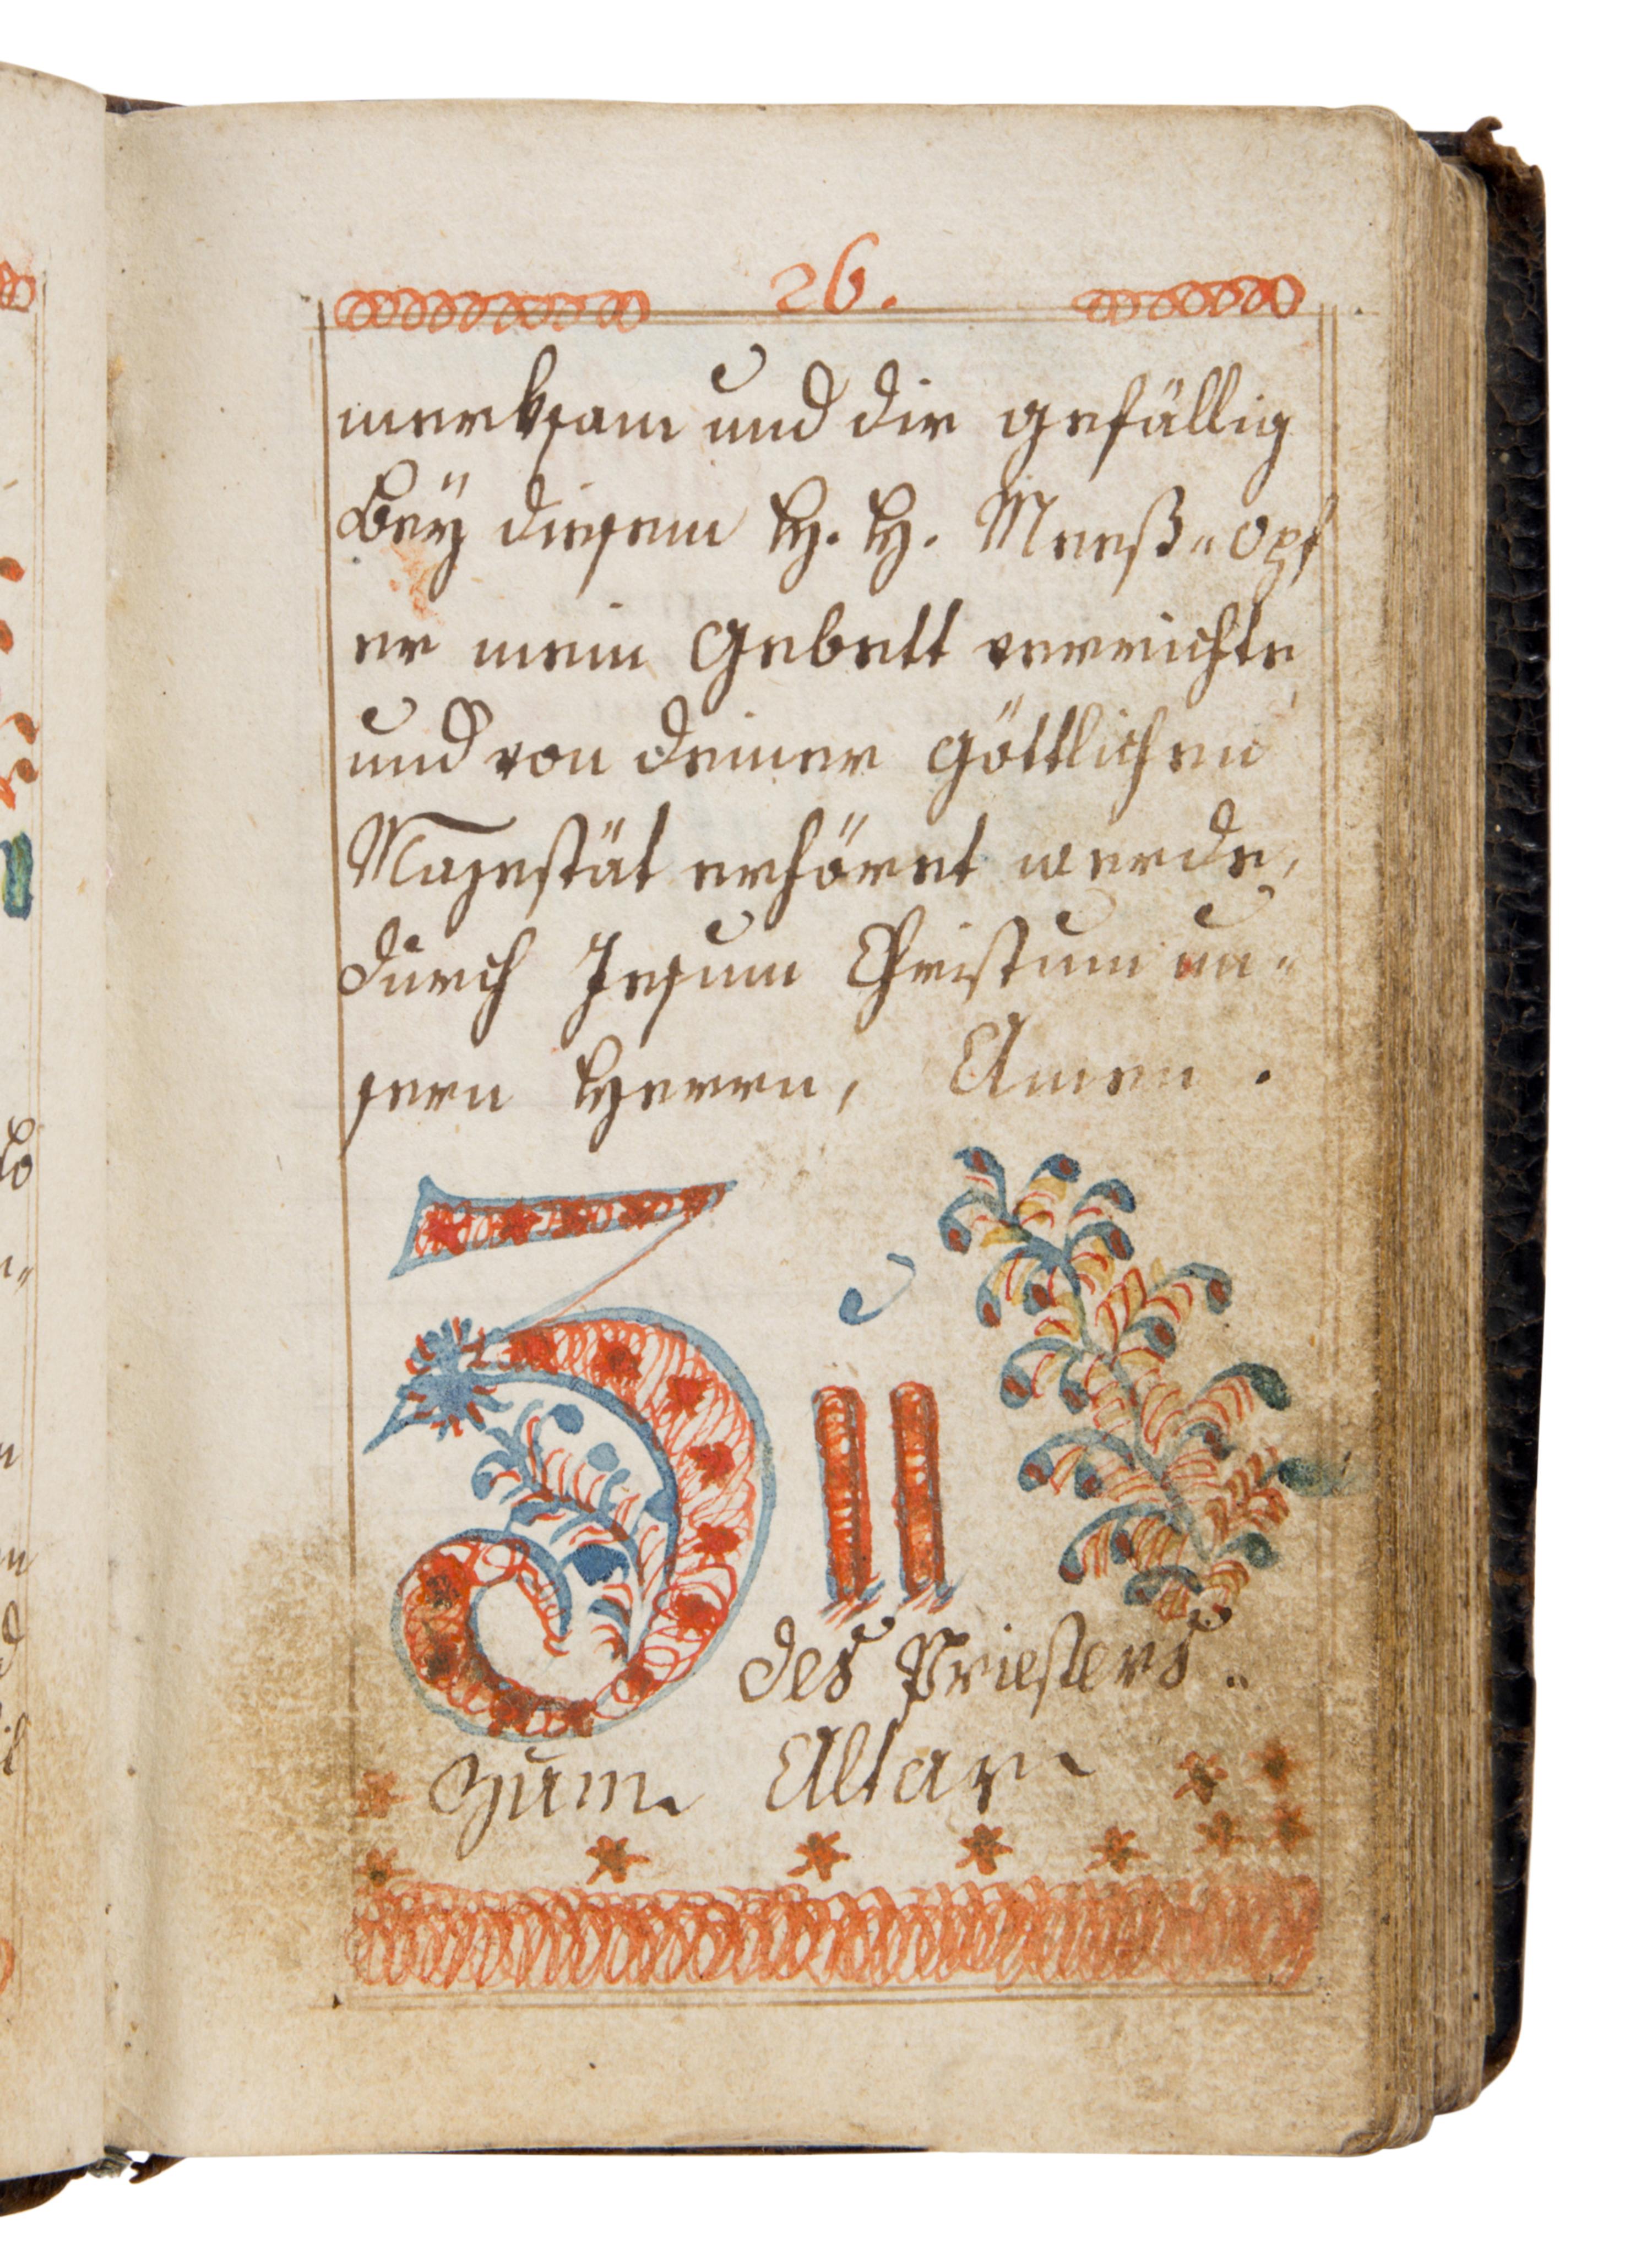 26.
merksam und dir gefällig
Beÿ diesem H. H. Meeß„opf
er mein Gebett verrichte
und von deiner göttlichen
Majestät erhöret werde,
durch Jesum Christum un„
sern Herrn, Amen.
Zu
des Priesters„
zum Altar